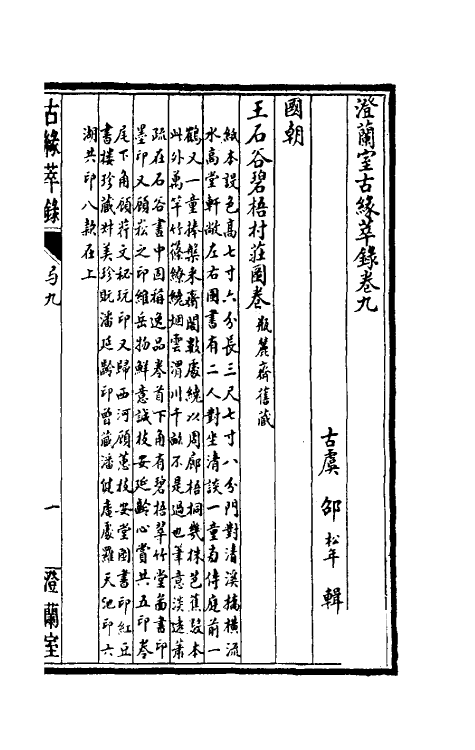 澄蘭室古緣萃錄卷九
古虞 邵松年 輯
國朝
王石谷碧梧村莊圖卷 瓶麓齋舊藏
紙本設色高七寸六分長三尺七寸八分門對清溪橋橫流
水高堂軒敞左右圖書有二人對坐清談一童旁侍庭前一
鶴又一童捧槃來齋閣數處繞以周廊梧桐幾株芭蕉數本
此外萬竿竹篠繚繞烟雲渭川千畝不是過也筆意淡遠蕭
疏在石谷畫中固稱逸品卷首下角有碧梧翠竹堂畵書印
墨印又顧崧之印維岳物鮮意誠枝安延齡心賞共五印卷
尾下角顧莊文秘玩印又歸西河顧蕙枝安堂圖書印紅豆
書樓珍藏尌美珍玩潘延齡印曾藏潘健庵處羅天池印六
湖共印八款在上
古緣萃錄
卷九
一
澄蘭室